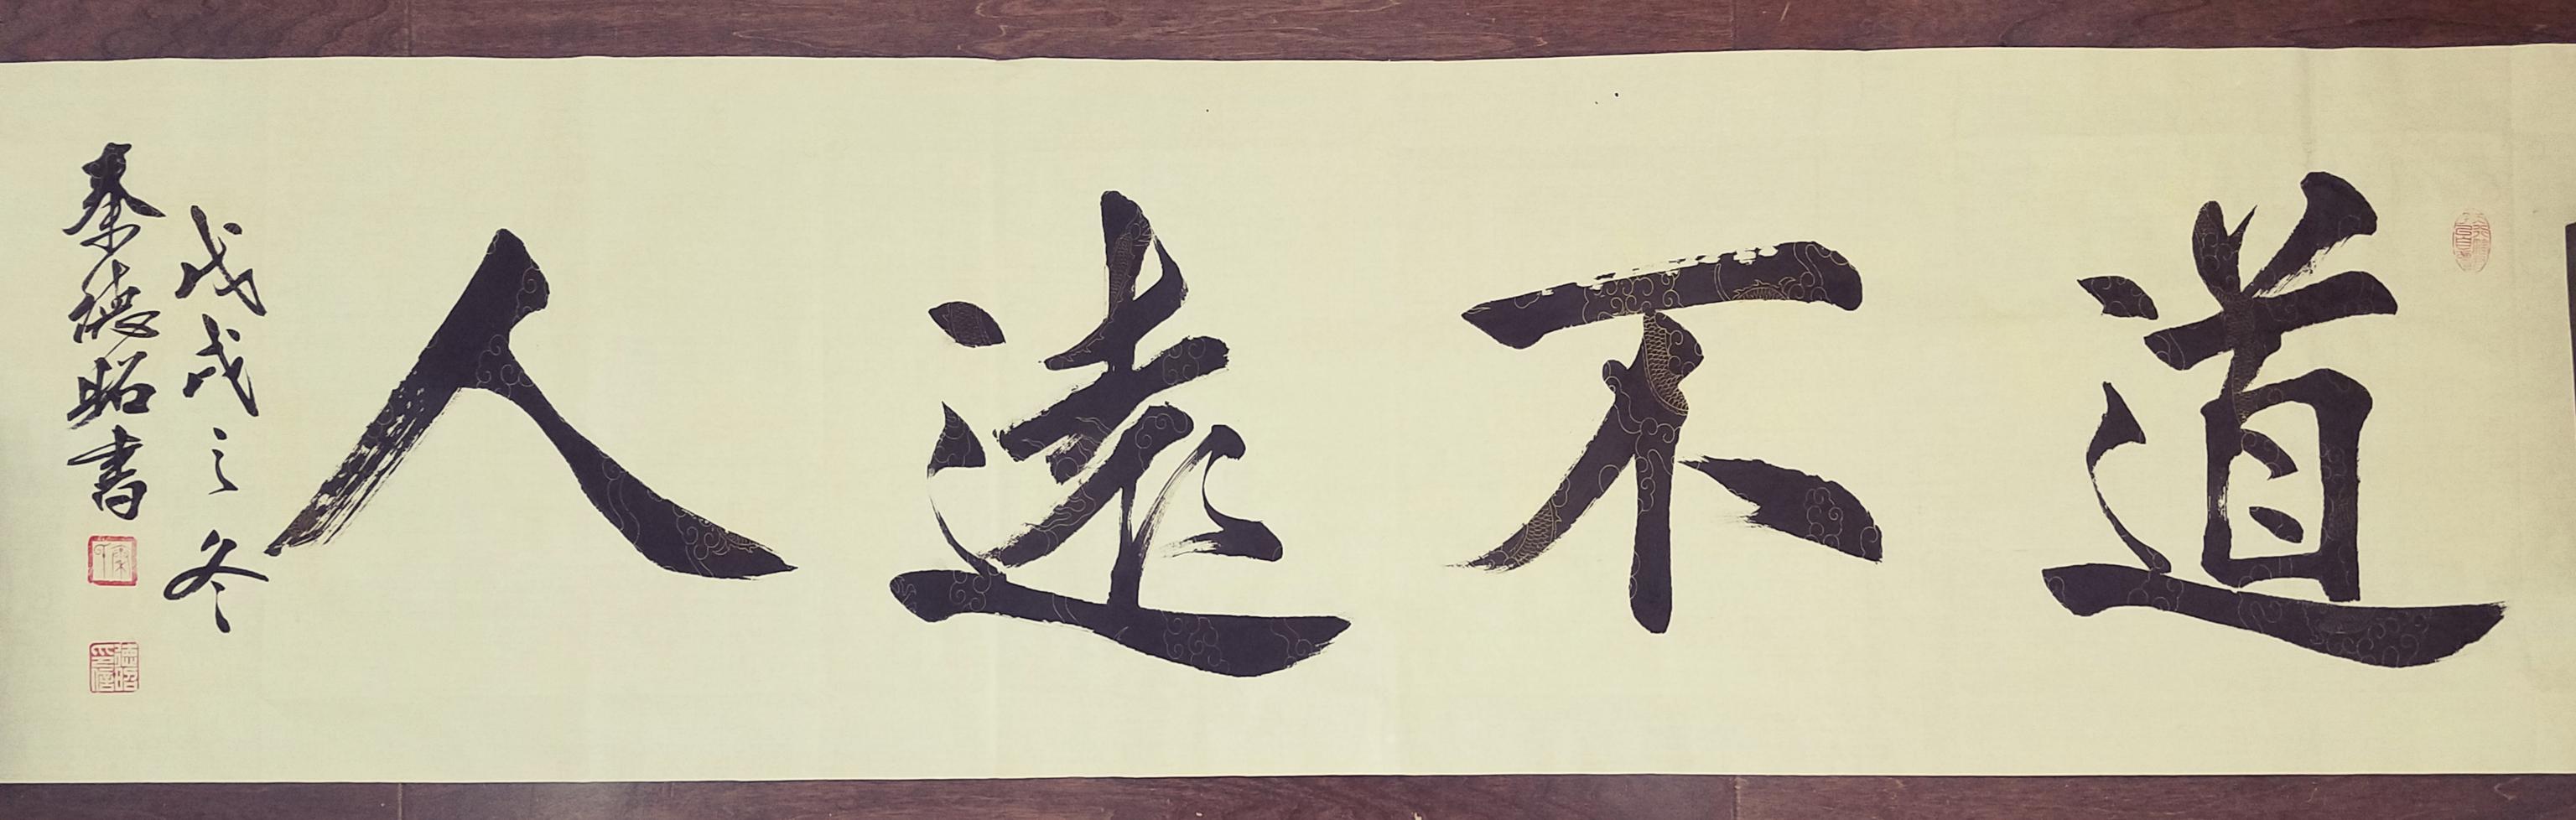 道不遠人
戊戌之冬
秦德昭書
德昭
印信